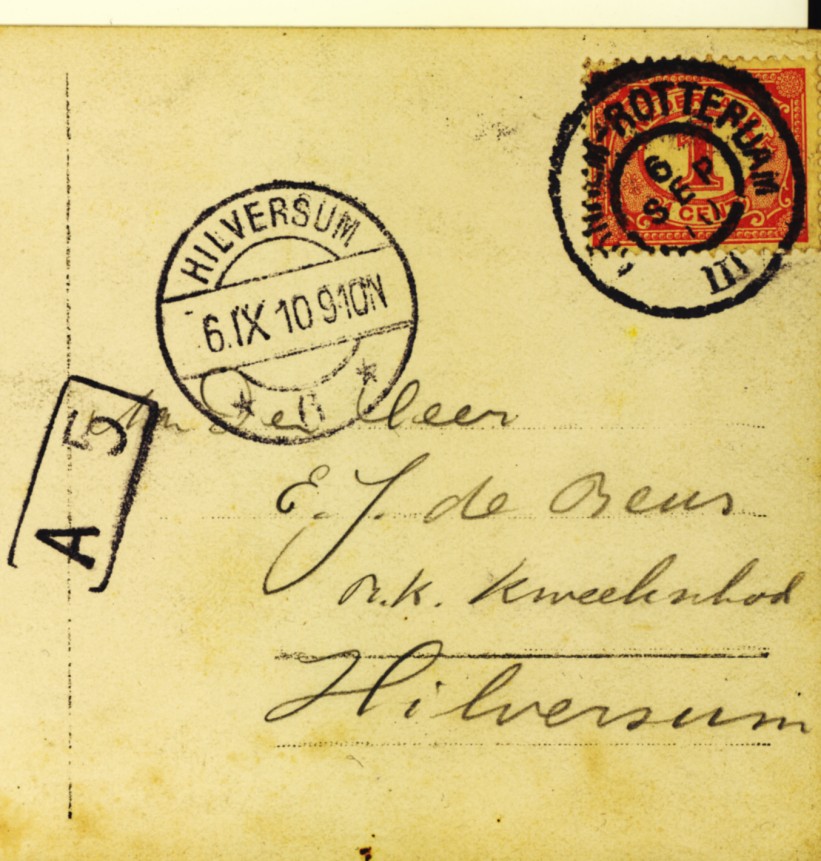 ROTTERDAM
6 SEP
1
CENT
III
HILVERSUM
6.IX 10 9-10N
A 5
Den Heer
E. J. de Beus
R.K. Kweekschool
Hilversum